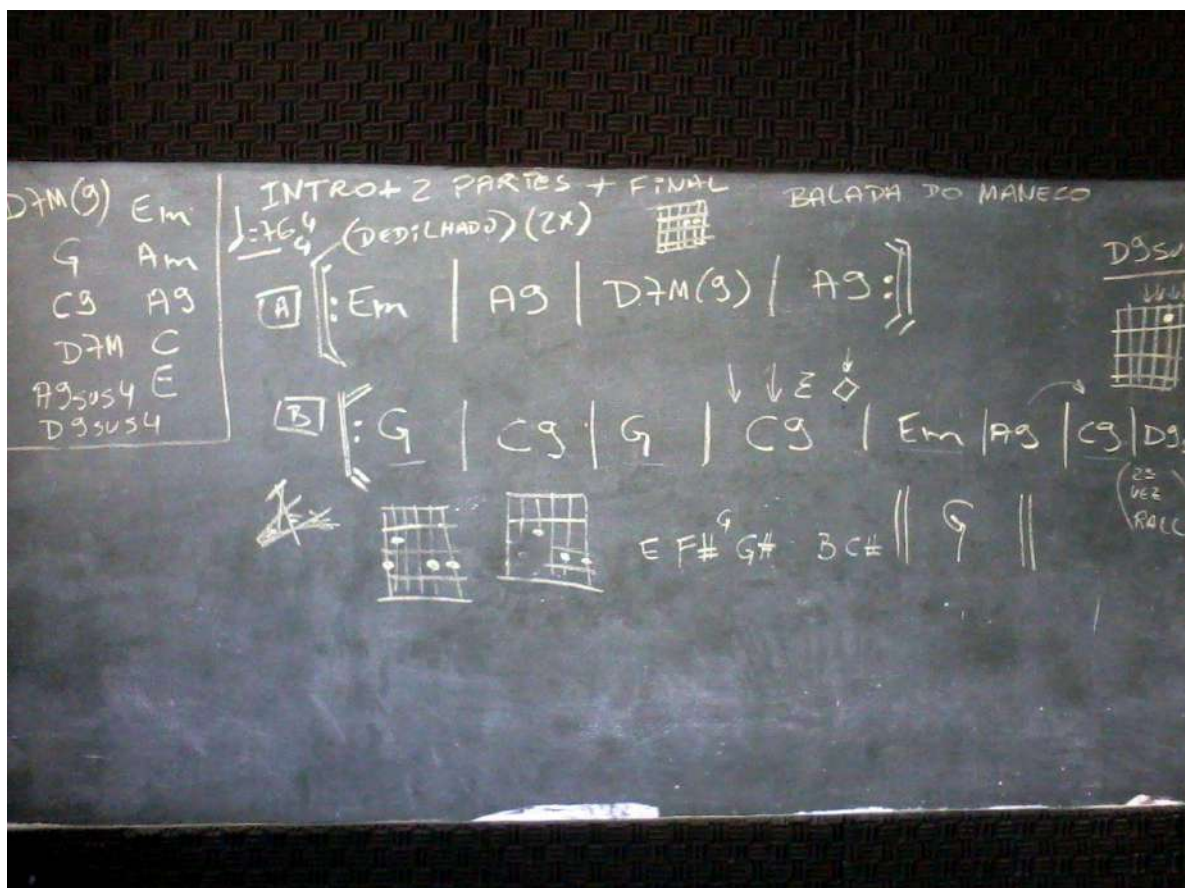 D7M(9) Em
G Am
C9 A9
D7M C
A9sus4 E
D9sus4
INTRO + 2 PARTES + FINAL
BALADA DO MANECO
♩=76 4/4 (DEDILHADO) (2X)
A ‖: Em | A9 | D7M(9) | A9 :‖
D9su
B ‖: G | C9 | G | C9 | Em | A9 | C9 | D9s
(2ª
VEZ
RALL
E F# G G# B C# ‖ G ‖